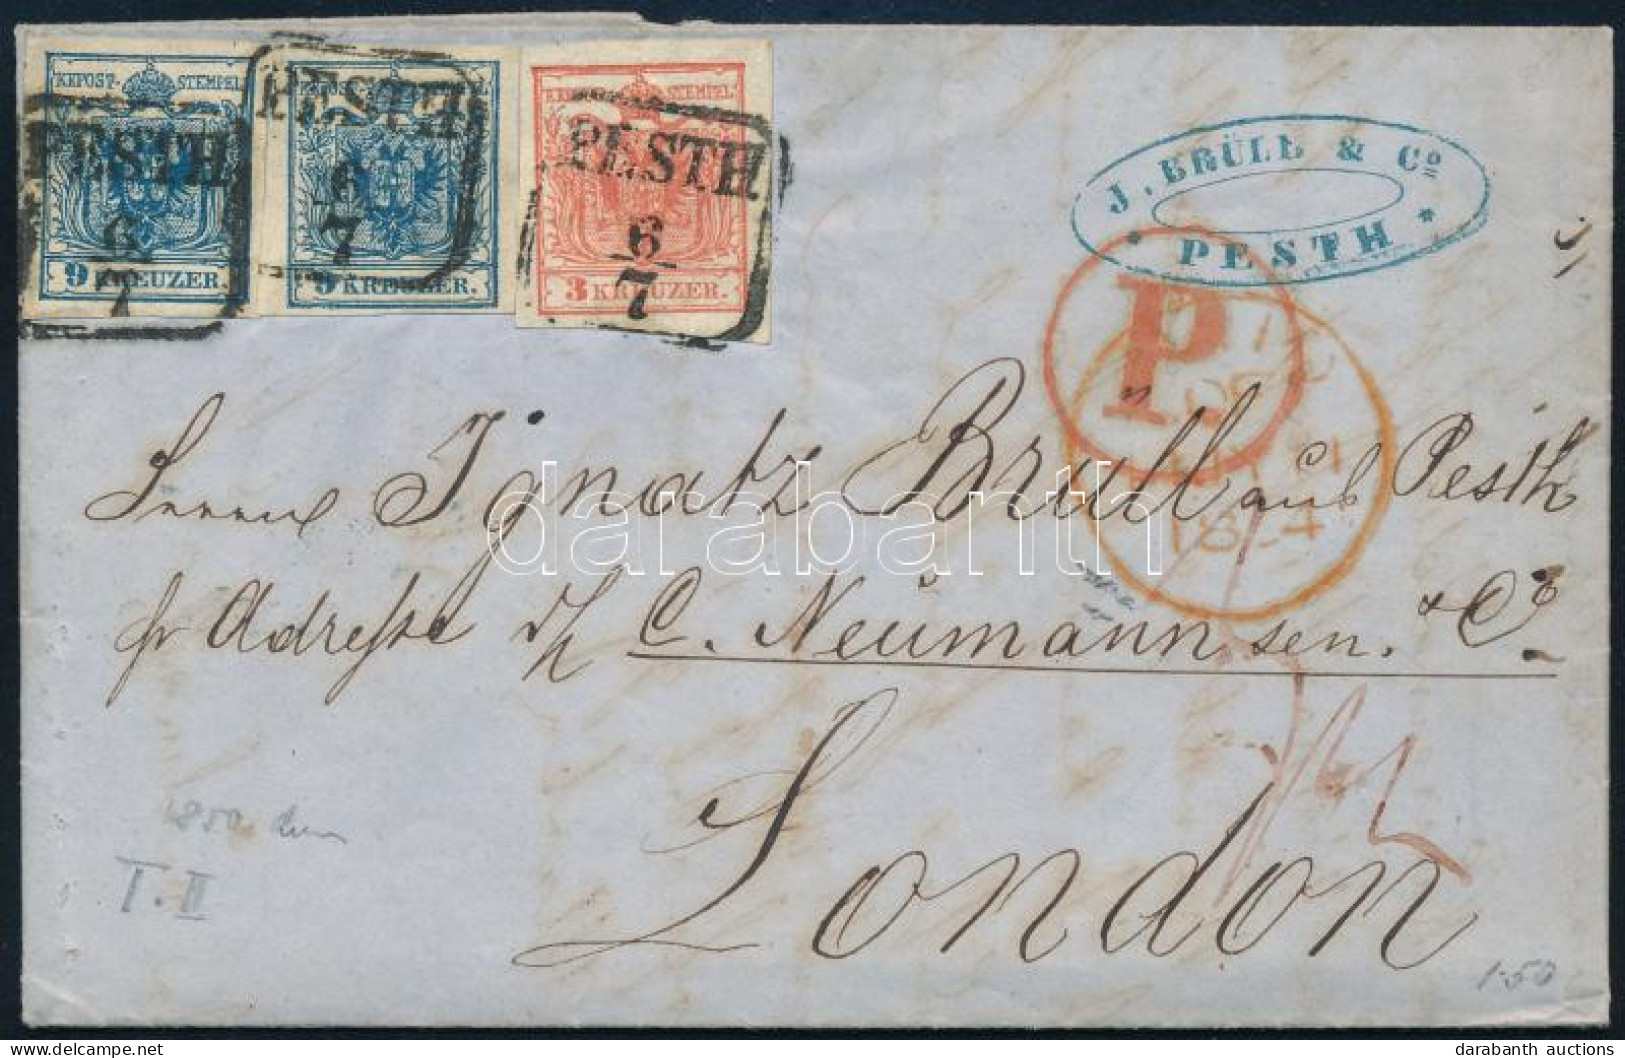 KKPOST-STEMPEL
9 KREUZER.
PESTH
6
7
KKPOST-STEMPEL
9 KREUZER.
PESTH
6
7
STEMPEL
3 KREUZER.
PESTH
6
7
J. BRÜLL & Co
* PESTH *
P.
Herrn Ignatz Brüll aus Pesth
pr Adresse d/H C. Neumann sen. & Co.
London
T. II
1-50
darabanth
darabanth auctions